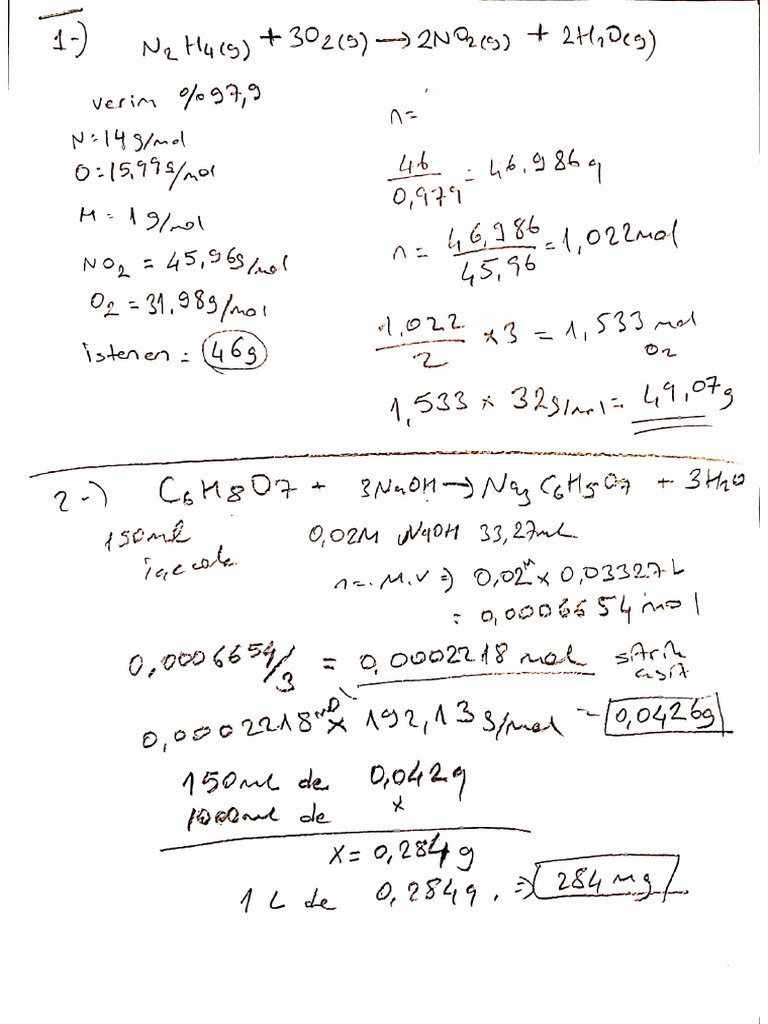 1-) N2H4(g) + 3O2(g) → 2NO2(g) + 2H2O(g)
verim %97,9
N=14g/mol
O=15,99g/mol
H=1g/mol
NO2 = 45,96g/mol
O2 = 31,98g/mol
istenen = 46g
n=
46/0,979 = 46,986g
n= 46,986/45,96 = 1,022mol
1,022/2 x3 = 1,533 mol O2
1,533 x 32g/mol = 49,07g
2-) C6H8O7 + 3NaOH → Na3C6H5O7 + 3H2O
150ml
0,02M NaOH 33,27mL
n=.M.V => 0,02M x 0,03327L
= 0,0006654 mol
0,0006654/3 = 0,0002218 mol sitrik asit
0,0002218 x 192,13g/mol = 0,0426g
150ml de 0,042g
1000ml de x
x = 0,284g
1 L de 0,284g. => 284 mg